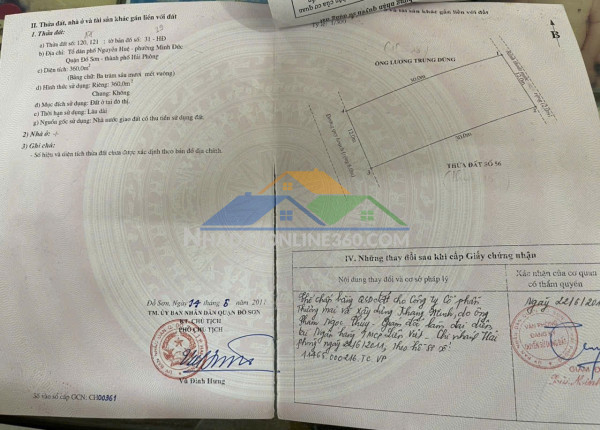 II. Thửa đất, nhà ở và tài sản khác gắn liền với đất
1. Thửa đất:
a) Thửa đất số: 120, 121 ; tờ bản đồ số: 31 - HĐ
b) Địa chỉ: Tổ dân phố Nguyễn Huệ - phường Minh Đức
Quận Đồ Sơn - thành phố Hải Phòng
c) Diện tích: 360,0m²
(Bằng chữ: Ba trăm sáu mươi mét vuông)
d) Hình thức sử dụng: Riêng: 360,0m²
Chung: Không
đ) Mục đích sử dụng: Đất ở tại đô thị.
e) Thời hạn sử dụng: Lâu dài
g) Nguồn gốc sử dụng: Nhà nước giao đất có thu tiền sử dụng đất.
2) Nhà ở: -/-
3) Ghi chú:
- Số hiệu và diện tích thửa đất chưa được xác định theo bản đồ địa chính.
Đồ Sơn, Ngày 14 tháng 6 năm 2011
TM. ỦY BAN NHÂN DÂN QUẬN ĐỒ SƠN
KT. CHỦ TỊCH
PHÓ CHỦ TỊCH
Vũ Đình Hưng
Số vào sổ cấp GCN: CH00361
B
ÔNG LƯƠNG TRUNG DŨNG
30.0m
12.0m
30.0m
THỬA ĐẤT SỐ 56
NHADATONLINE360.COM
IV. Những thay đổi sau khi cấp Giấy chứng nhận
Nội dung thay đổi và cơ sở pháp lý
Xác nhận của cơ quan
có thẩm quyền
Thế chấp bằng QSDĐ cho Công ty Cổ phần
Thương mại và Xây dựng Khang Minh, do ông
Phạm Ngọc Thủy - Giám đốc làm đại diện
Liên Việt - Chi nhánh Hải
Phòng ngày 22/6/2011, theo hồ sơ số
Ngày 22/6/201
GIÁM Đ